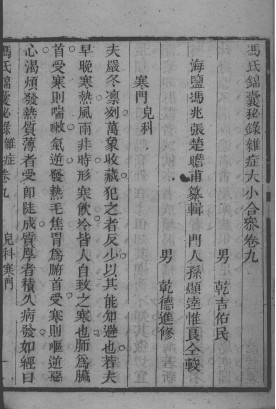 馮氏錦囊秘錄雜症大小合參卷九
男 乾吉佑民
海鹽馮兆張楚瞻甫纂輯 門人孫顯達惟良仝較
男 乾德進修
寒門兒科
夫嚴冬凛冽萬象收藏犯之者反少以其能知避也若夫
早晚寒熱風雨非時形寒飲冷皆人自致之寒也肺爲臟
首受寒則喘嗽氣逆發熱毛焦胃爲腑首受寒則嘔逆惡
心渴煩發熱質薄者受即陡成質厚者積久病發如經曰
馮氏錦囊秘錄雜症卷九 兒科寒門 一